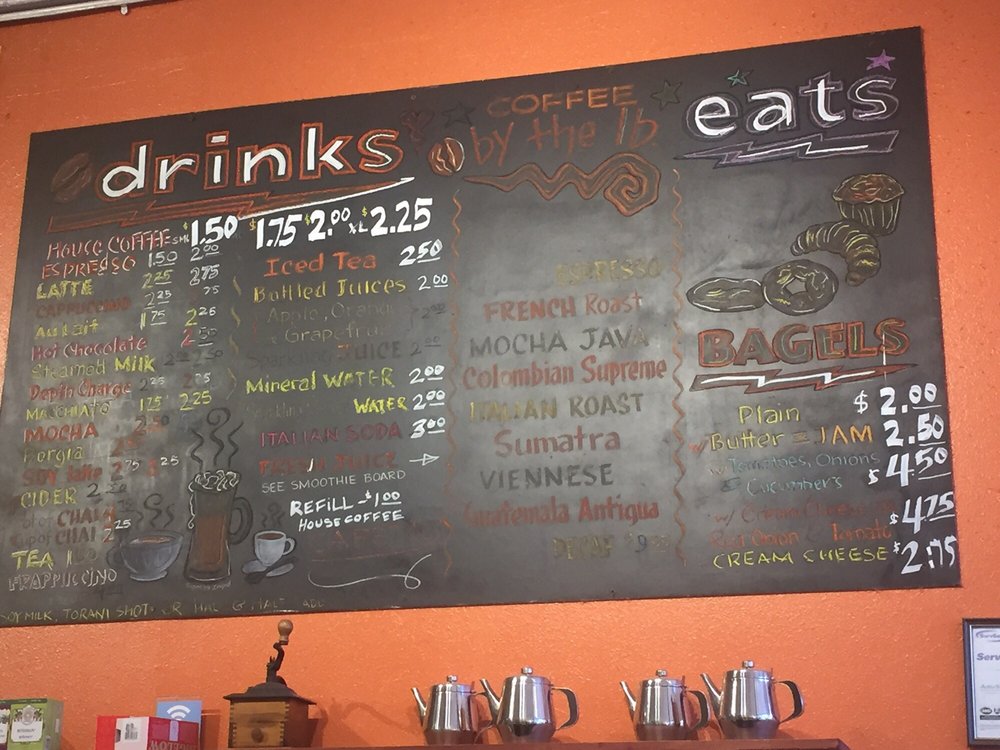 drinks
HOUSE COFFEE SML $1.50 $1.75 $2.00 XL $2.25
ESPRESSO 1.50 2.00
LATTE 2.25 2.75
CAPPUCCINO 2.25 75
AuLait 1.75 2.25
Hot Chocolate 2 50
Steamed Milk 2.00 2.50
Depth Charge 2.25 2.75
MACCHIATO 1.75 2.25
MOCHA 2.50
Borgia
SOY latte 2.75 3.25
CIDER 2.50
CHAI
cup of CHAI 2.25
TEA
FRAPPUCCINO
SOY MILK, TORANI SHOT ADD
Iced Tea 2.50
Bottled Juices 2.00
Apple, Orange
Grapefruit
Sparkling JUICE 2.00
Mineral WATER 2.00
WATER 2.00
ITALIAN SODA 3.00
FRESH JUICE
SEE SMOOTHIE BOARD
REFILL $1.00
HOUSE COFFEE
COFFEE
by the lb.
ESPRESSO
FRENCH Roast
MOCHA JAVA
Colombian Supreme
ITALIAN ROAST
Sumatra
VIENNESE
Guatemala Antigua
DECAF
eats
BAGELS
Plain $2.00
w/ Butter JAM 2.50
w/ Tomatoes, Onions
Cucumbers $4.50
w/ Cream Cheese
Red Onion Tomato $4.75
CREAM CHEESE $2.75